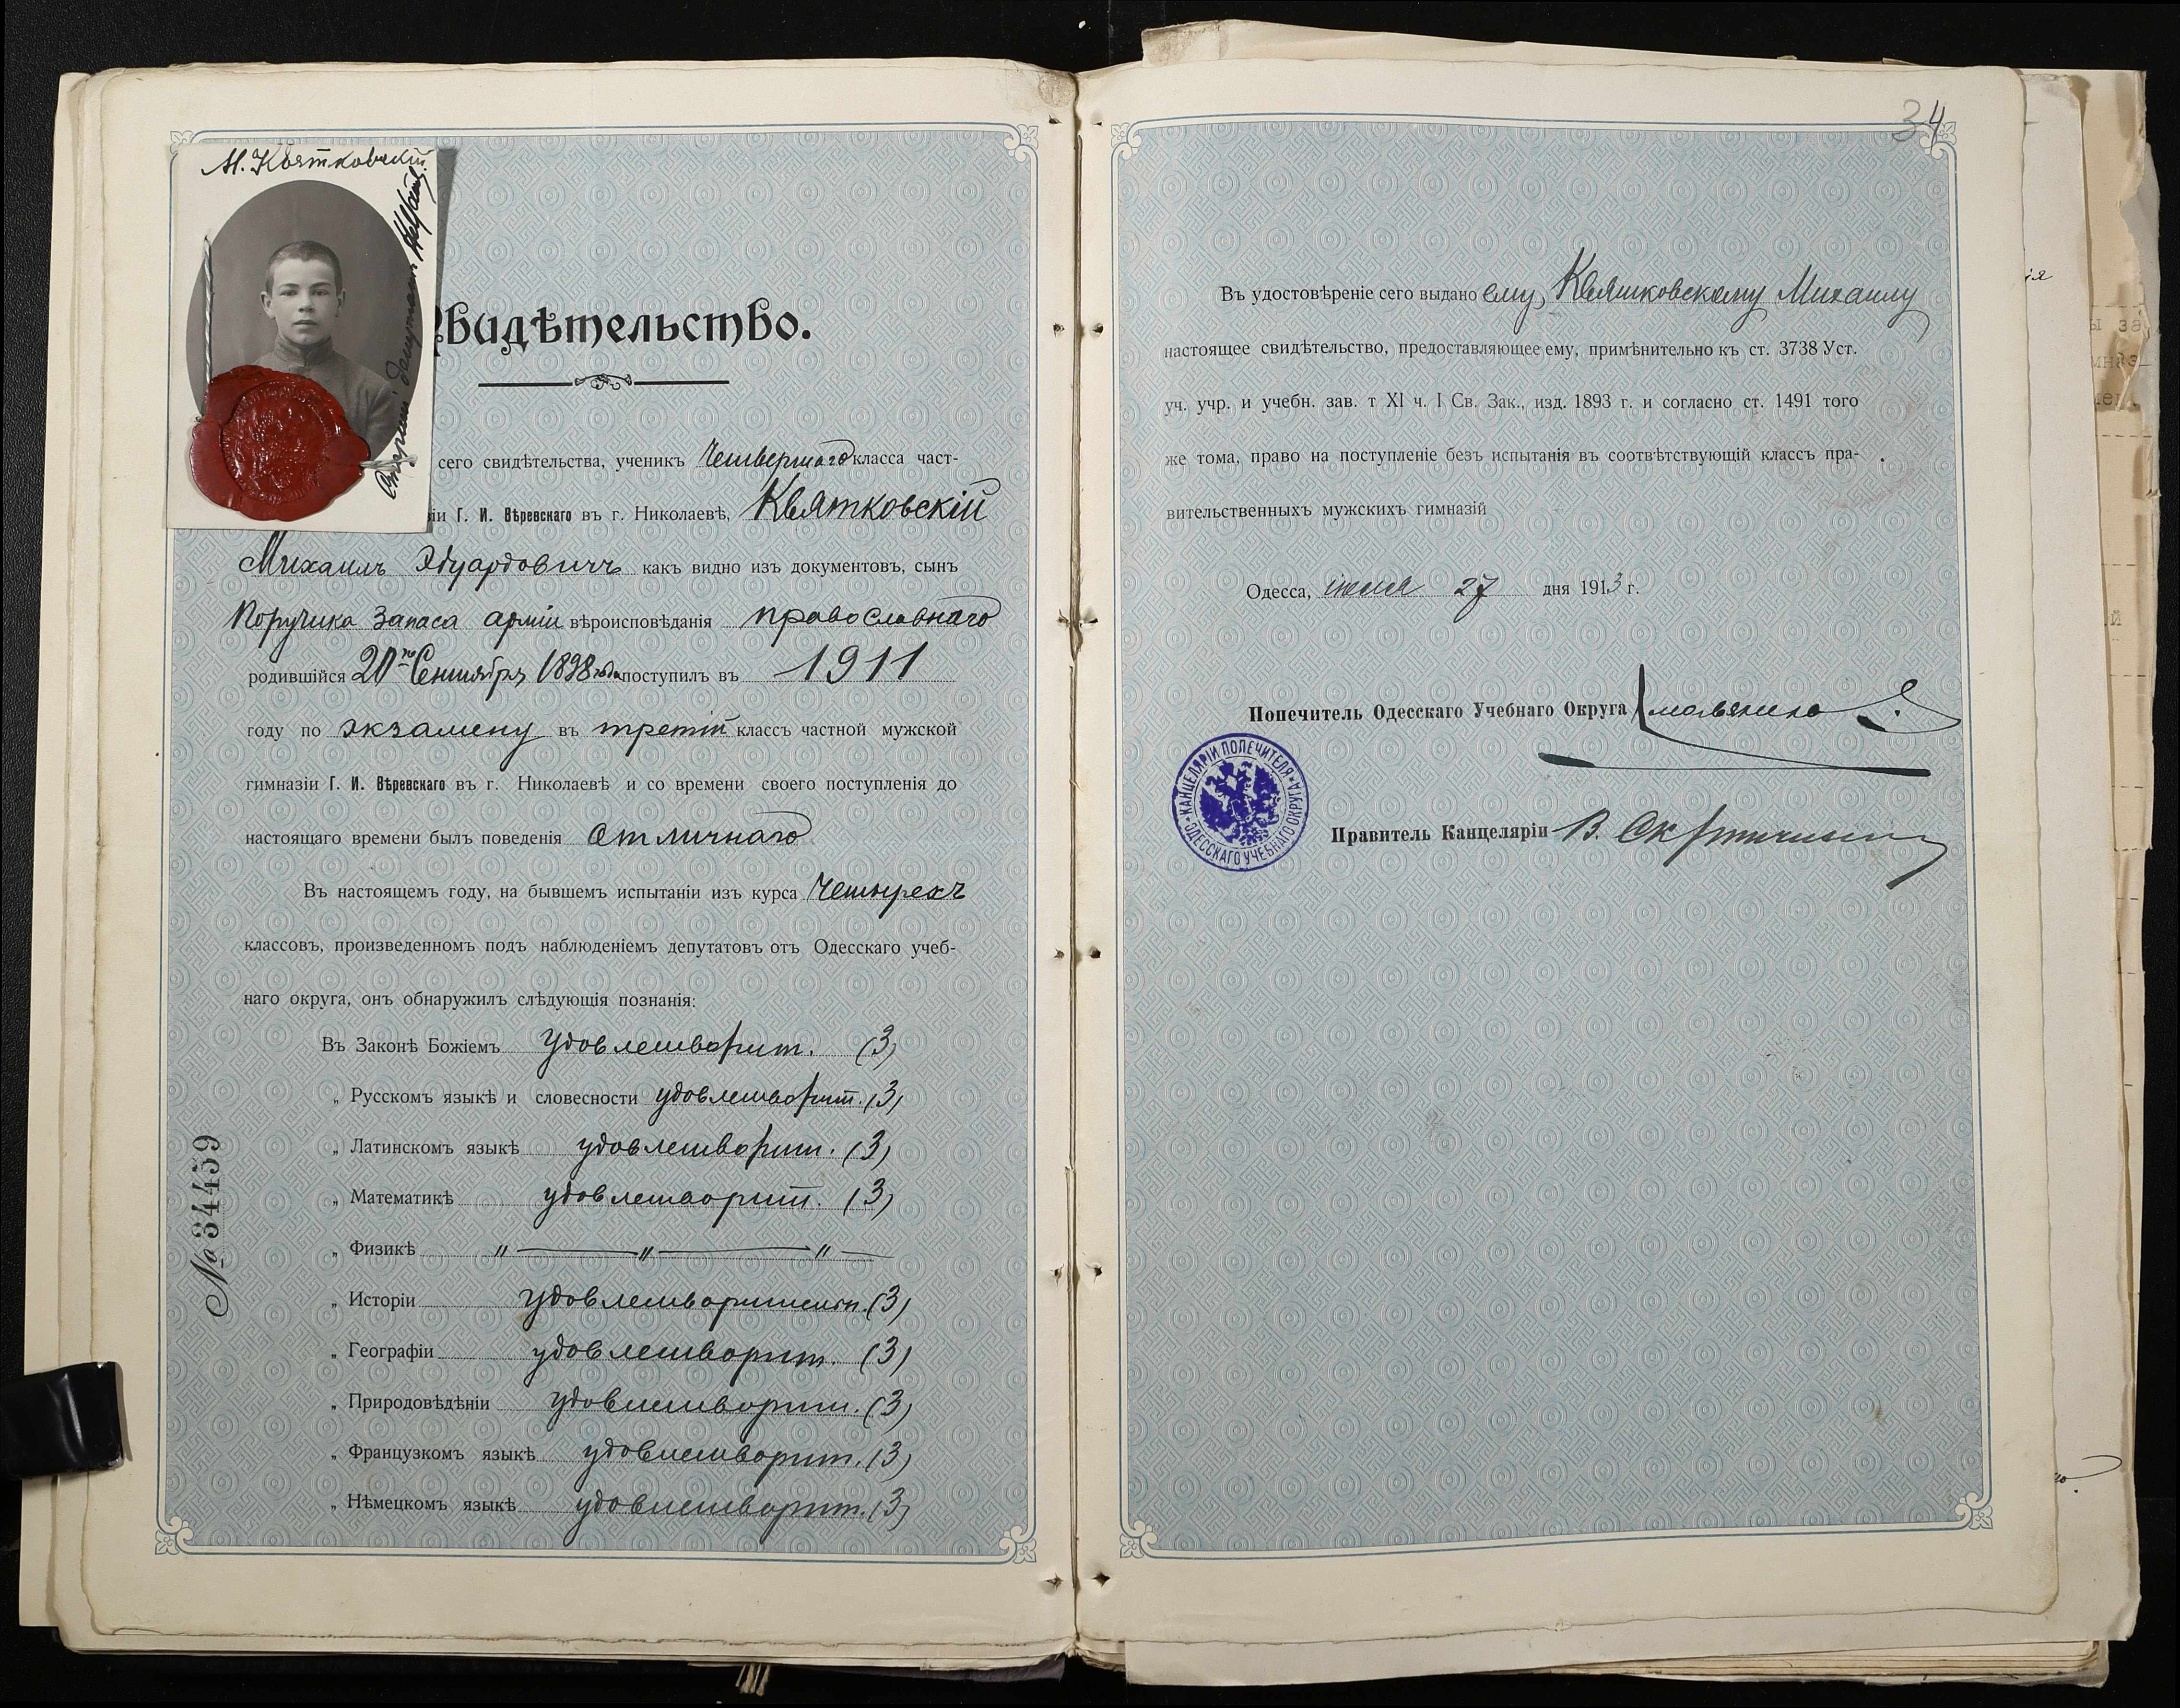 М. Квятковскій
Свидѣтельство.
сего свидѣтельства, ученикъ Четвертаго класса част-
зіи Г. И. Вѣревскаго въ г. Николаевѣ, Квятковскій
Михаилъ Эдуардовичъ какъ видно изъ документовъ, сынъ
Поручика Запаса арміи вѣроисповѣданія православнаго
родившійся 20го Сентября 1898 года поступилъ въ 1911
году по экзамену въ третій классъ частной мужской
гимназіи Г. И. Вѣревскаго въ г. Николаевѣ и со времени своего поступленія до
настоящаго времени былъ поведенія отличнаго
Въ настоящемъ году, на бывшемъ испытаніи изъ курса Четырехъ
классовъ, произведенномъ подъ наблюденіемъ депутатовъ отъ Одесскаго учеб-
наго округа, онъ обнаружилъ слѣдующія познанія:
Въ Законѣ Божіемъ удовлетворит. (3)
„ Русскомъ языкѣ и словесности удовлетворит. (3)
„ Латинскомъ языкѣ удовлетворит. (3)
„ Математикѣ удовлетворит. (3)
„ Физикѣ „ — „ — „ —
„ Исторіи удовлетворительн. (3)
„ Географіи удовлетворит. (3)
„ Природовѣдѣніи удовлетворит. (3)
„ Французкомъ языкѣ удовлетворит. (3)
„ Нѣмецкомъ языкѣ удовлетворит. (3)
№ 34459
34
Въ удостовѣреніе сего выдано ему, Квятковскому Михаилу
настоящее свидѣтельство, предоставляющее ему, примѣнительно къ ст. 3738 Уст.
уч. учр. и учебн. зав. т XI ч. I Св. Зак., изд. 1893 г. и согласно ст. 1491 того
же тома, право на поступленіе безъ испытанія въ соотвѣтствующій классъ пра-
вительственныхъ мужскихъ гимназій
Одесса, 27 дня 1913 г.
Попечитель Одесскаго Учебнаго Округа
КАНЦЕЛЯРІИ ПОПЕЧИТЕЛЯ ОДЕССКАГО УЧЕБНАГО ОКРУГА
Правитель Канцеляріи В.